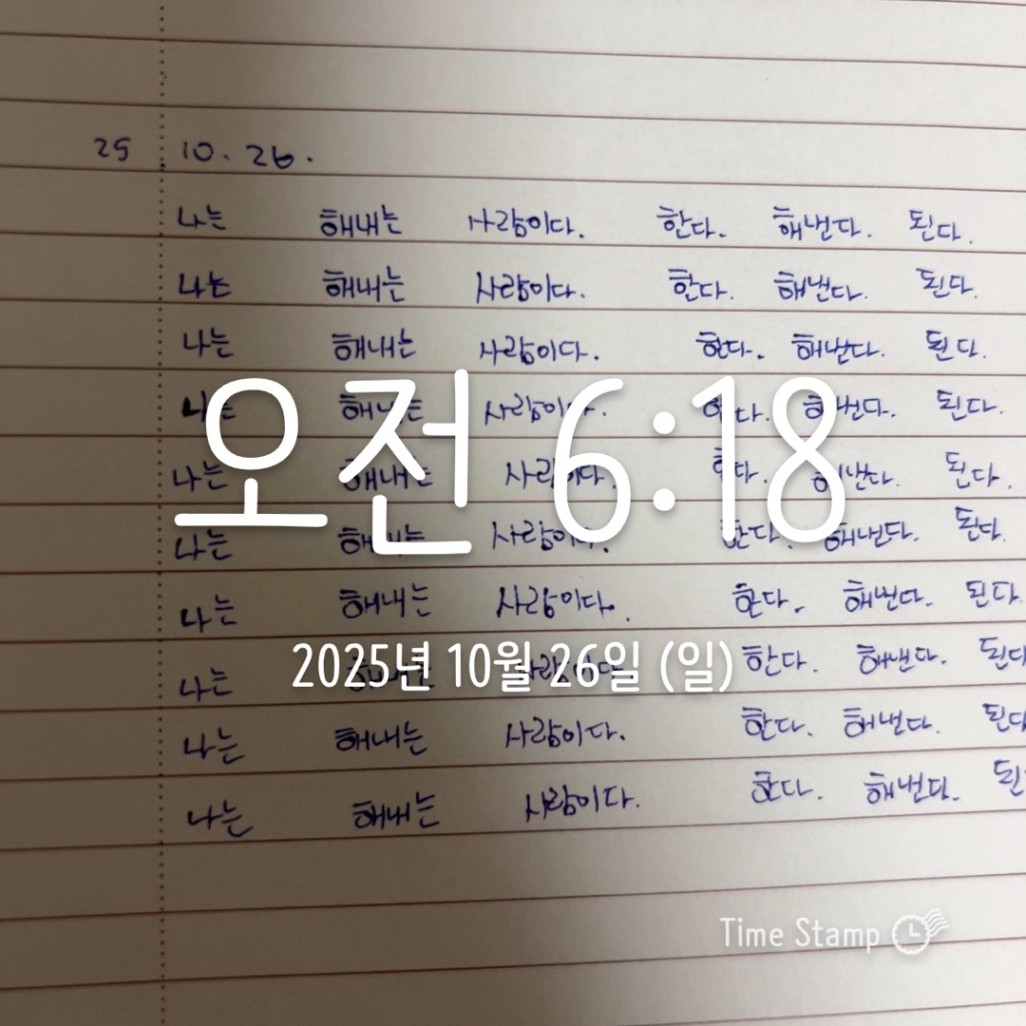 25 10. 26.
나는 해내는 사람이다. 한다. 해낸다. 된다.
나는 해내는 사람이다. 한다. 해낸다. 된다.
나는 해내는 사람이다. 한다. 해낸다. 된다.
나는 해내는 사람이다. 한다. 해낸다. 된다.
오전 6:18
나는 해내는 사람이다. 한다. 해낸다. 된다.
나는 해내는 사람이다. 한다. 해낸다. 된다.
나는 해내는 사람이다. 한다. 해낸다. 된다.
2025년 10월 26일 (일)
나는 해내는 사람이다. 한다. 해낸다. 된다
나는 해내는 사람이다. 한다. 해낸다. 된다
나는 해내는 사람이다. 한다. 해낸다. 된
Time Stamp